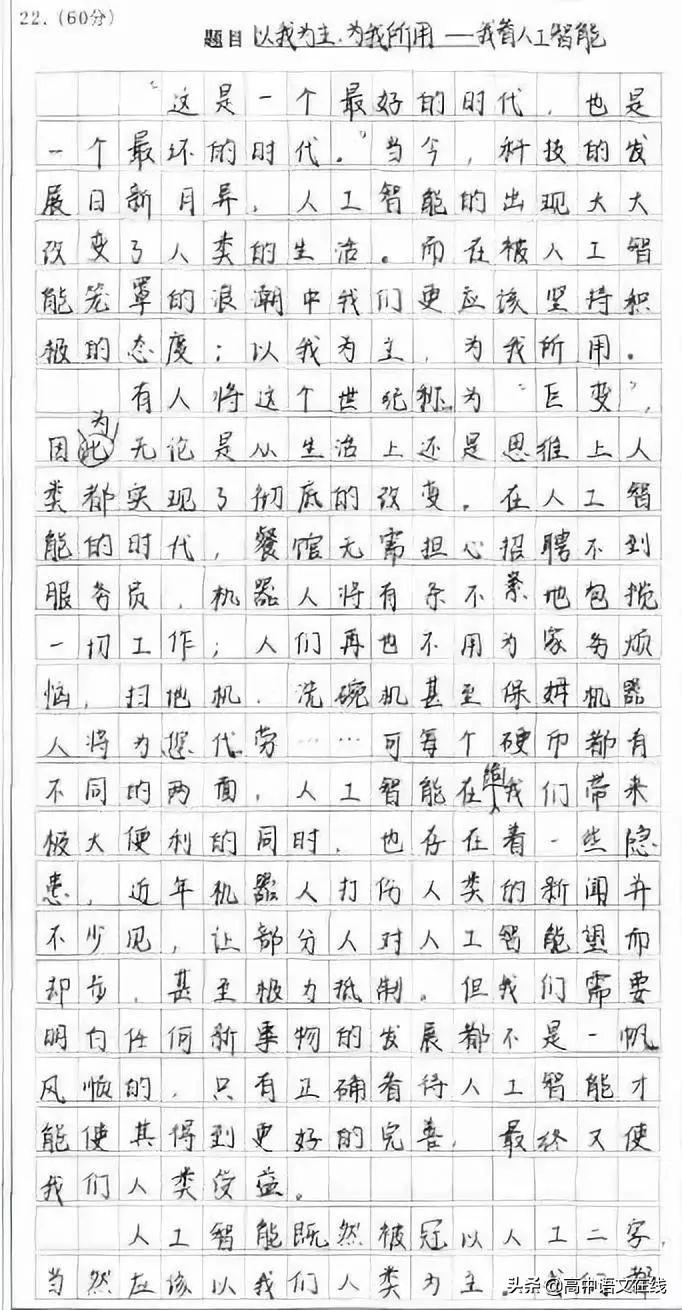 22.(60分)
题目 以我为主、为我所用——我看人工智能
“这是一个最好的时代，也是
一个最坏的时代。”当今，科技的发
展日新月异，人工智能的出现大大
改变了人类的生活。而在被人工智
能笼罩的浪潮中我们更应该坚持积
极的态度；以我为主，为我所用。
有人将这个世纪称为“巨变”，
因为无论是从生活上还是思维上人
类都实现了彻底的改变。在人工智
能的时代，餐馆无需担心招聘不到
服务员，机器人将有条不紊地包揽
一切工作；人们再也不用为家务烦
恼，扫地机、洗碗机甚至保姆机器
人将为您代劳……可每个硬币都有
不同的两面，人工智能在给我们带来
极大便利的同时，也存在着一些隐
患，近年机器人打伤人类的新闻并
不少见，让部分人对人工智能望而
却步，甚至极力抵制。但我们需要
明白任何新事物的发展都不是一帆
风顺的，只有正确看待人工智能才
能使其得到更好的完善，最终又使
我们人类受益。
人工智能既然被冠以人工二字，
当然应该以我们人类为主。我们都
头条@高中语文在线